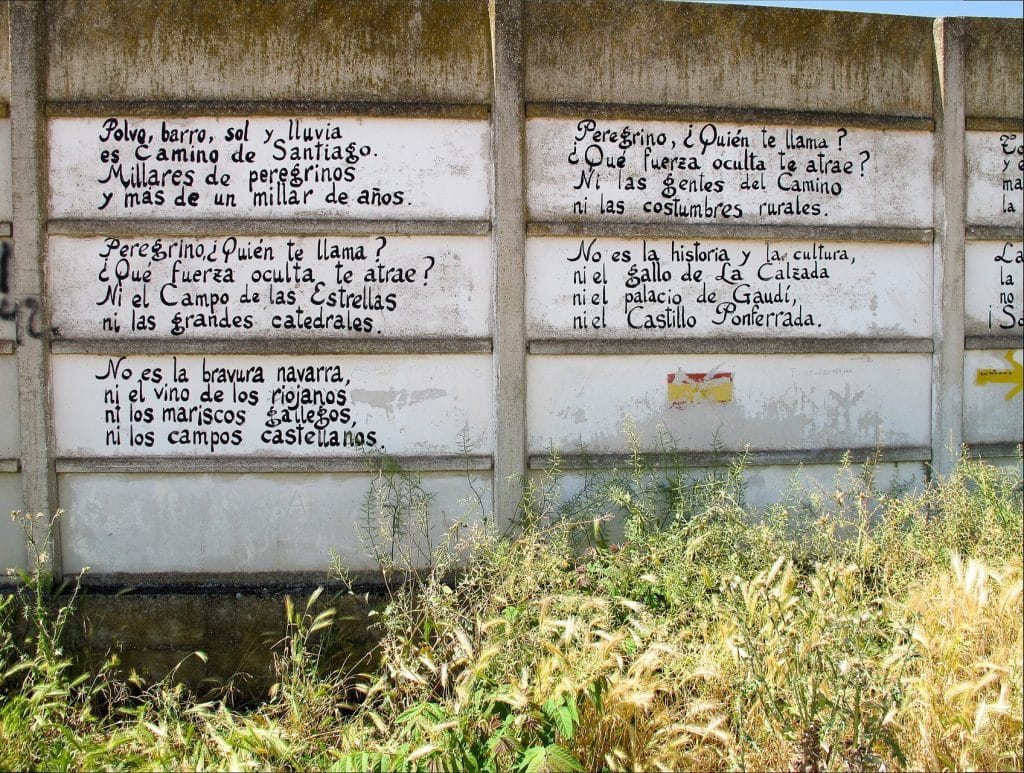 Polvo, barro, sol y lluvia
es Camino de Santiago.
Millares de peregrinos
y más de un millar de años.
Peregrino, ¿Quién te llama?
¿Qué fuerza oculta te atrae?
Ni el Campo de las Estrellas
ni las grandes catedrales.
No es la bravura navarra,
ni el vino de los riojanos
ni los mariscos gallegos,
ni los campos castellanos.
Peregrino, ¿Quién te llama?
¿Qué fuerza oculta te atrae?
Ni las gentes del Camino
ni las costumbres rurales.
No es la historia y la cultura,
ni el gallo de La Calzada
ni el palacio de Gaudí,
ni el Castillo Ponferrada.
To
y e
ma
la
La
la
no
¡So